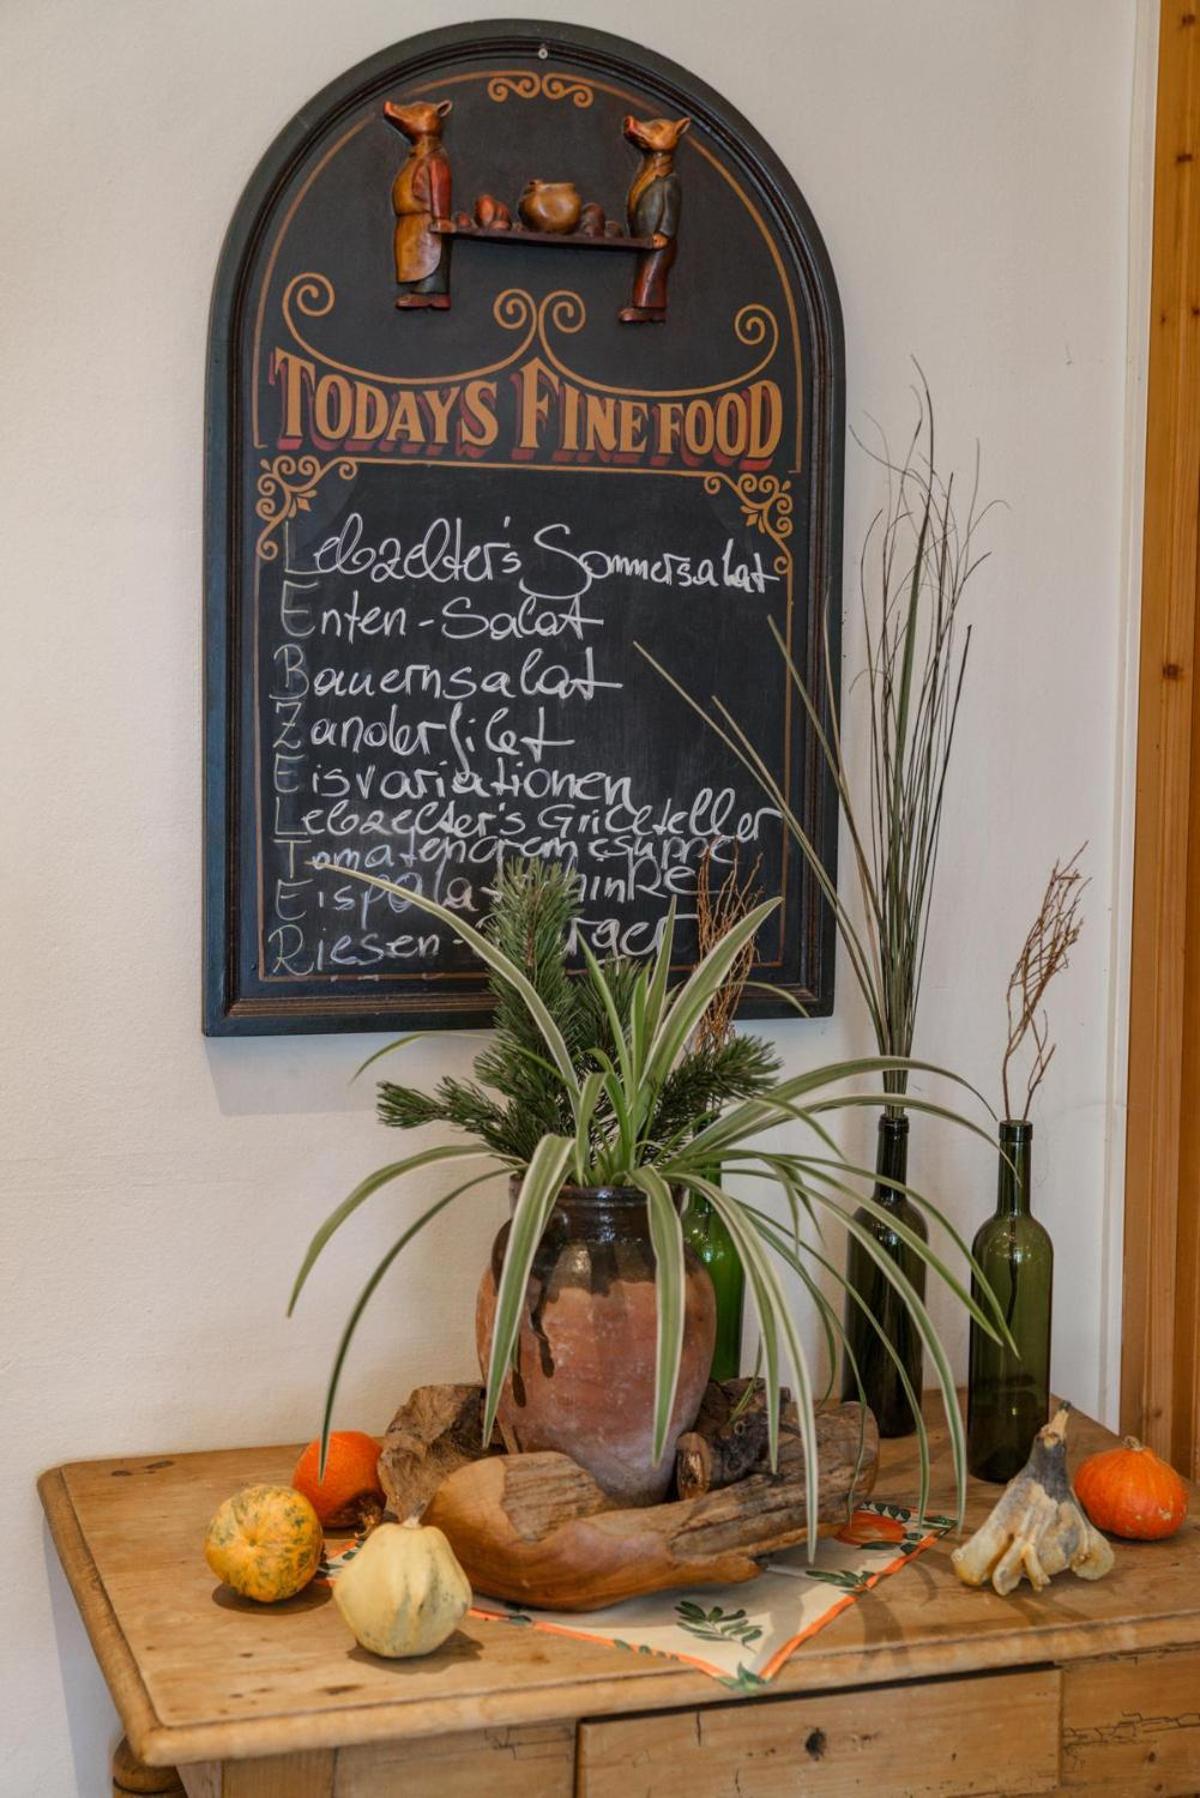 TODAYS FINE FOOD
Lebzelter's Sommersalat
Enten-Salat
Bauernsalat
Zanderfilet
Eisvariationen
Lebzelter's Grillteller
Tomatencremesuppe
Riesen-